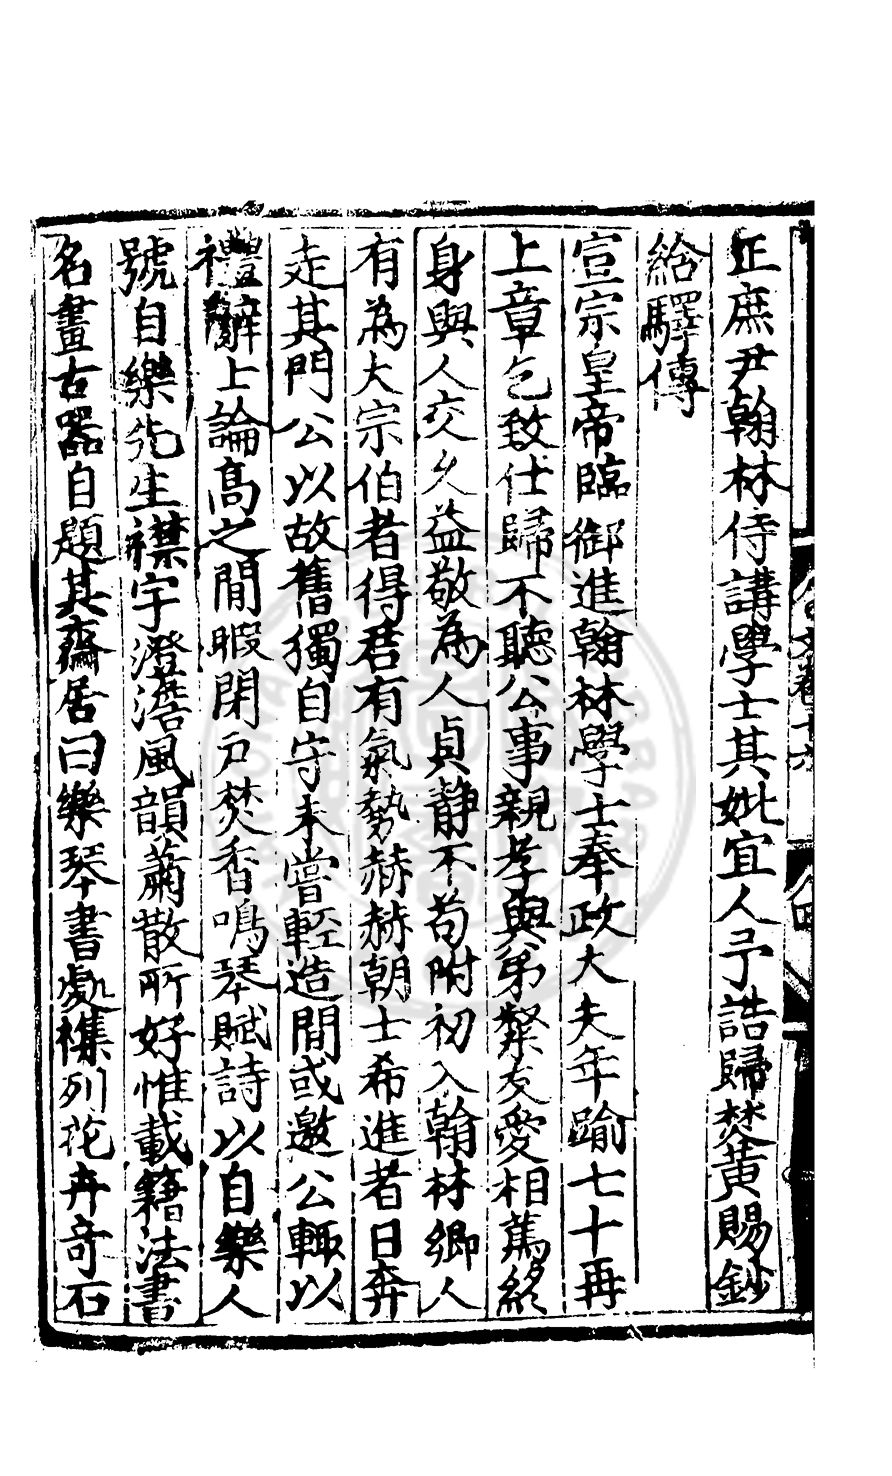 正庶尹翰林侍講學士其妣宜人予誥歸焚黃賜鈔
給驛傳
宣宗皇帝臨御進翰林學士奉政大夫年踰七十再
上章乞致仕歸不聽公事親孝與弟縏友愛相篤終
身與人交久益敬為人貞靜不苟附初入翰林鄉人
有為大宗伯者得君有氣勢赫赫朝士希進者日奔
走其門公以故舊獨自守未嘗輕造間或邀公輙以
禮辭上論高之閒暇閉戶焚香鳴琴賦詩以自樂人
號自樂先生襟宇澄澹風韻蕭散所好惟載籍法書
名畫古器自題其齋居曰樂琴書處襍列花卉竒石
文卷十六
四